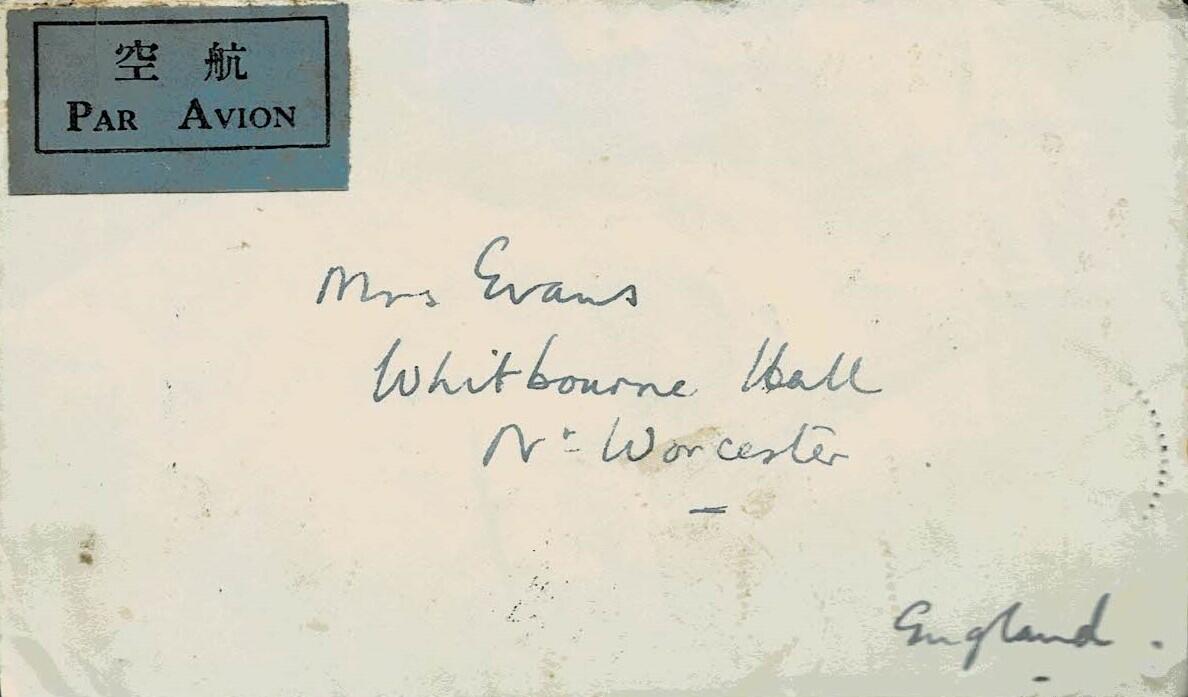 空 航
PAR AVION
Mrs Evans
Whitbourne Hall
Nr Worcester
England.